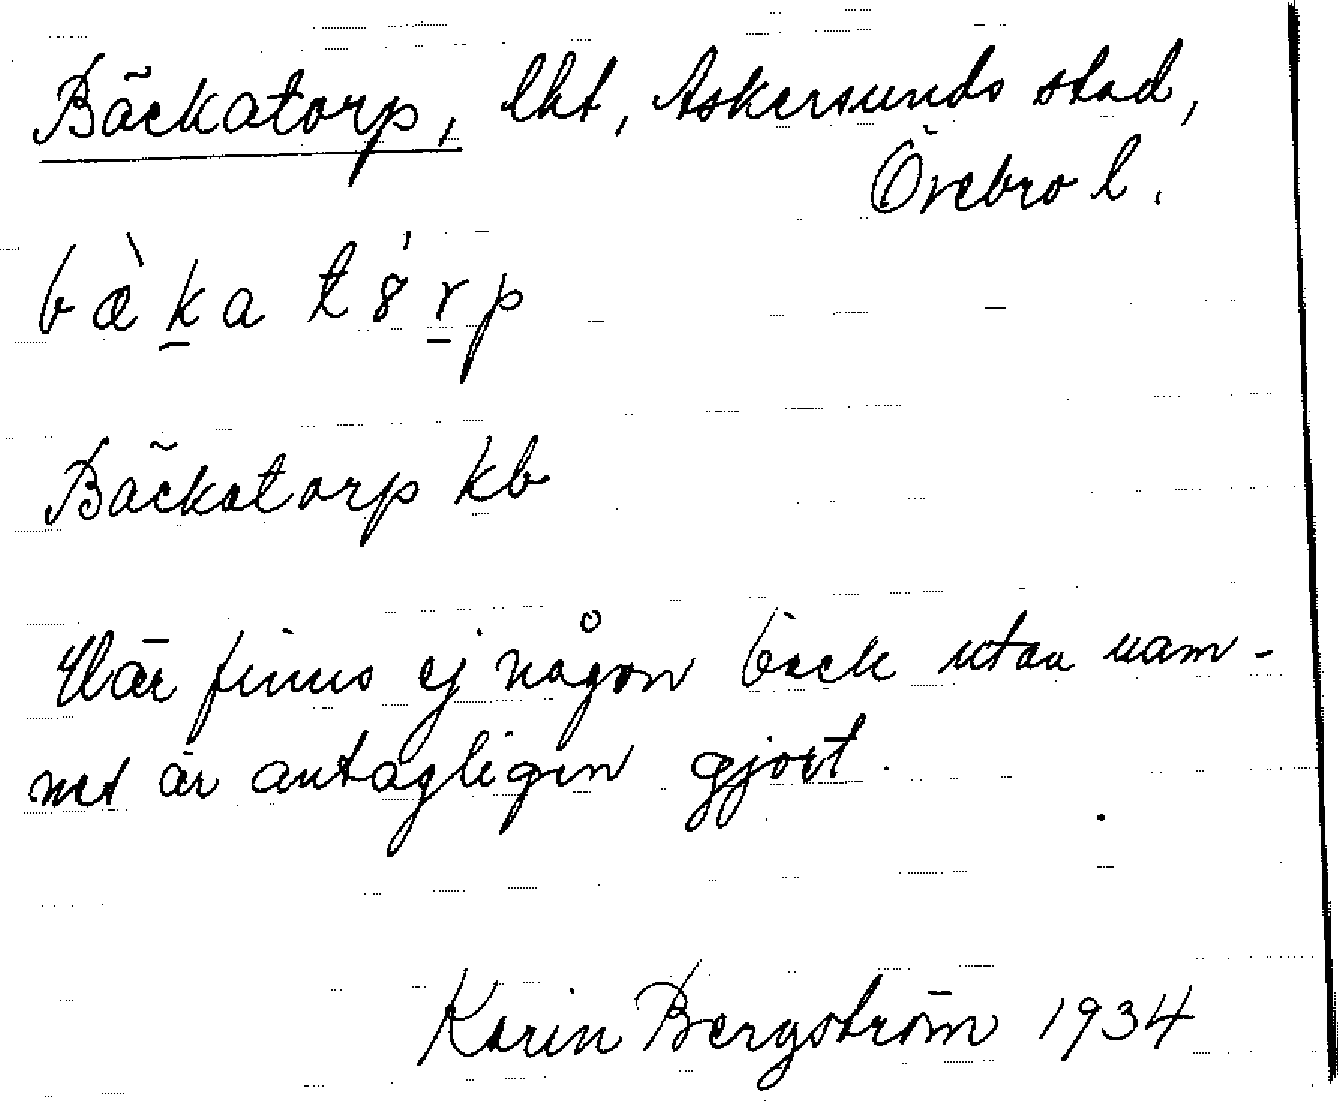 Bäckatorp, lht, Askersunds stad,
Örebro l.
bæ̀ḵa tȣ́ṟp
Bäckatorp kb
Här finns ej någon bäck utan nam-
net är antagligen gjort.
Karin Bergström 1934